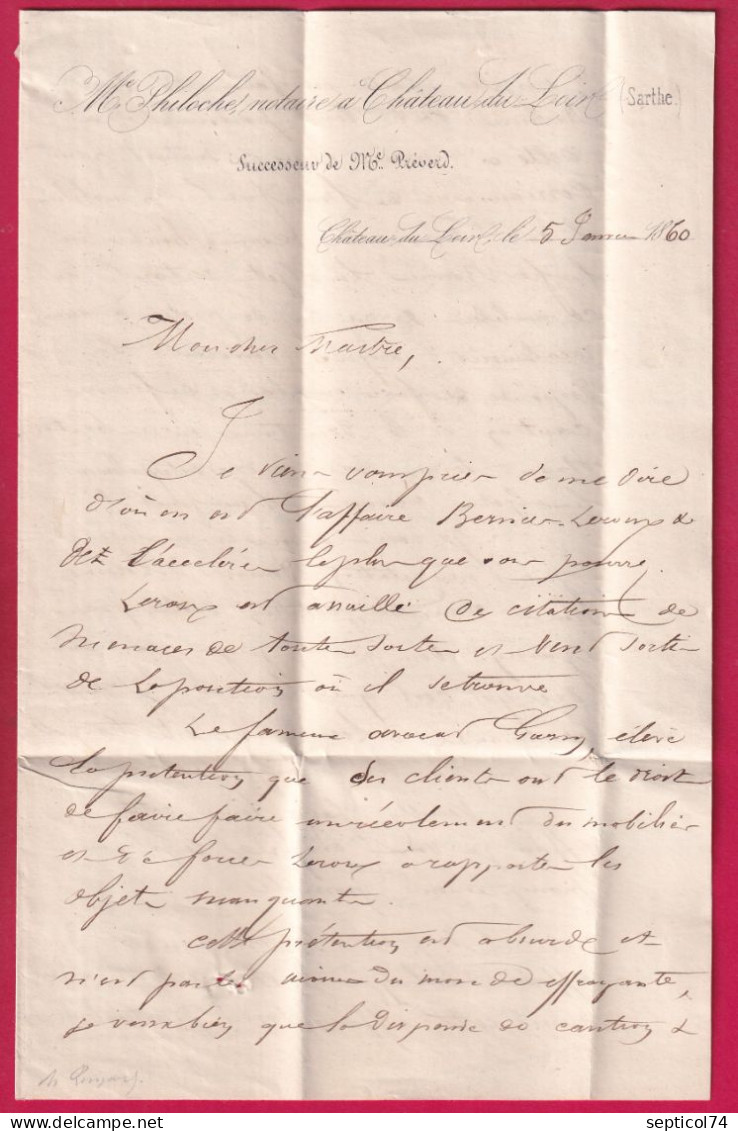 Me Philoche, notaire à Château du Loir (Sarthe.)
Successeur de Me. Préverd.
Château du Loir, le 5 Janvier 1860
Mon cher Maitre,
Je viens vous prier de me dire
d'où en est l'affaire Bernier Leroux &
de l'accélérer le plus que vous pourrez
Leroux est assailli de citations de
menaces de toutes sortes et veut sortir
de la position où il se trouve
Le fameux avocat élève
la prétention que ses clients ont le droit
de faire faire un récolement du mobilier
et de forcer Leroux à rapporter les
objets manquants.
cette prétention est absurde et
n'est pas du mode effrayante,
je vois bien que la dispense de caution &
www.delcampe.net
septicol74